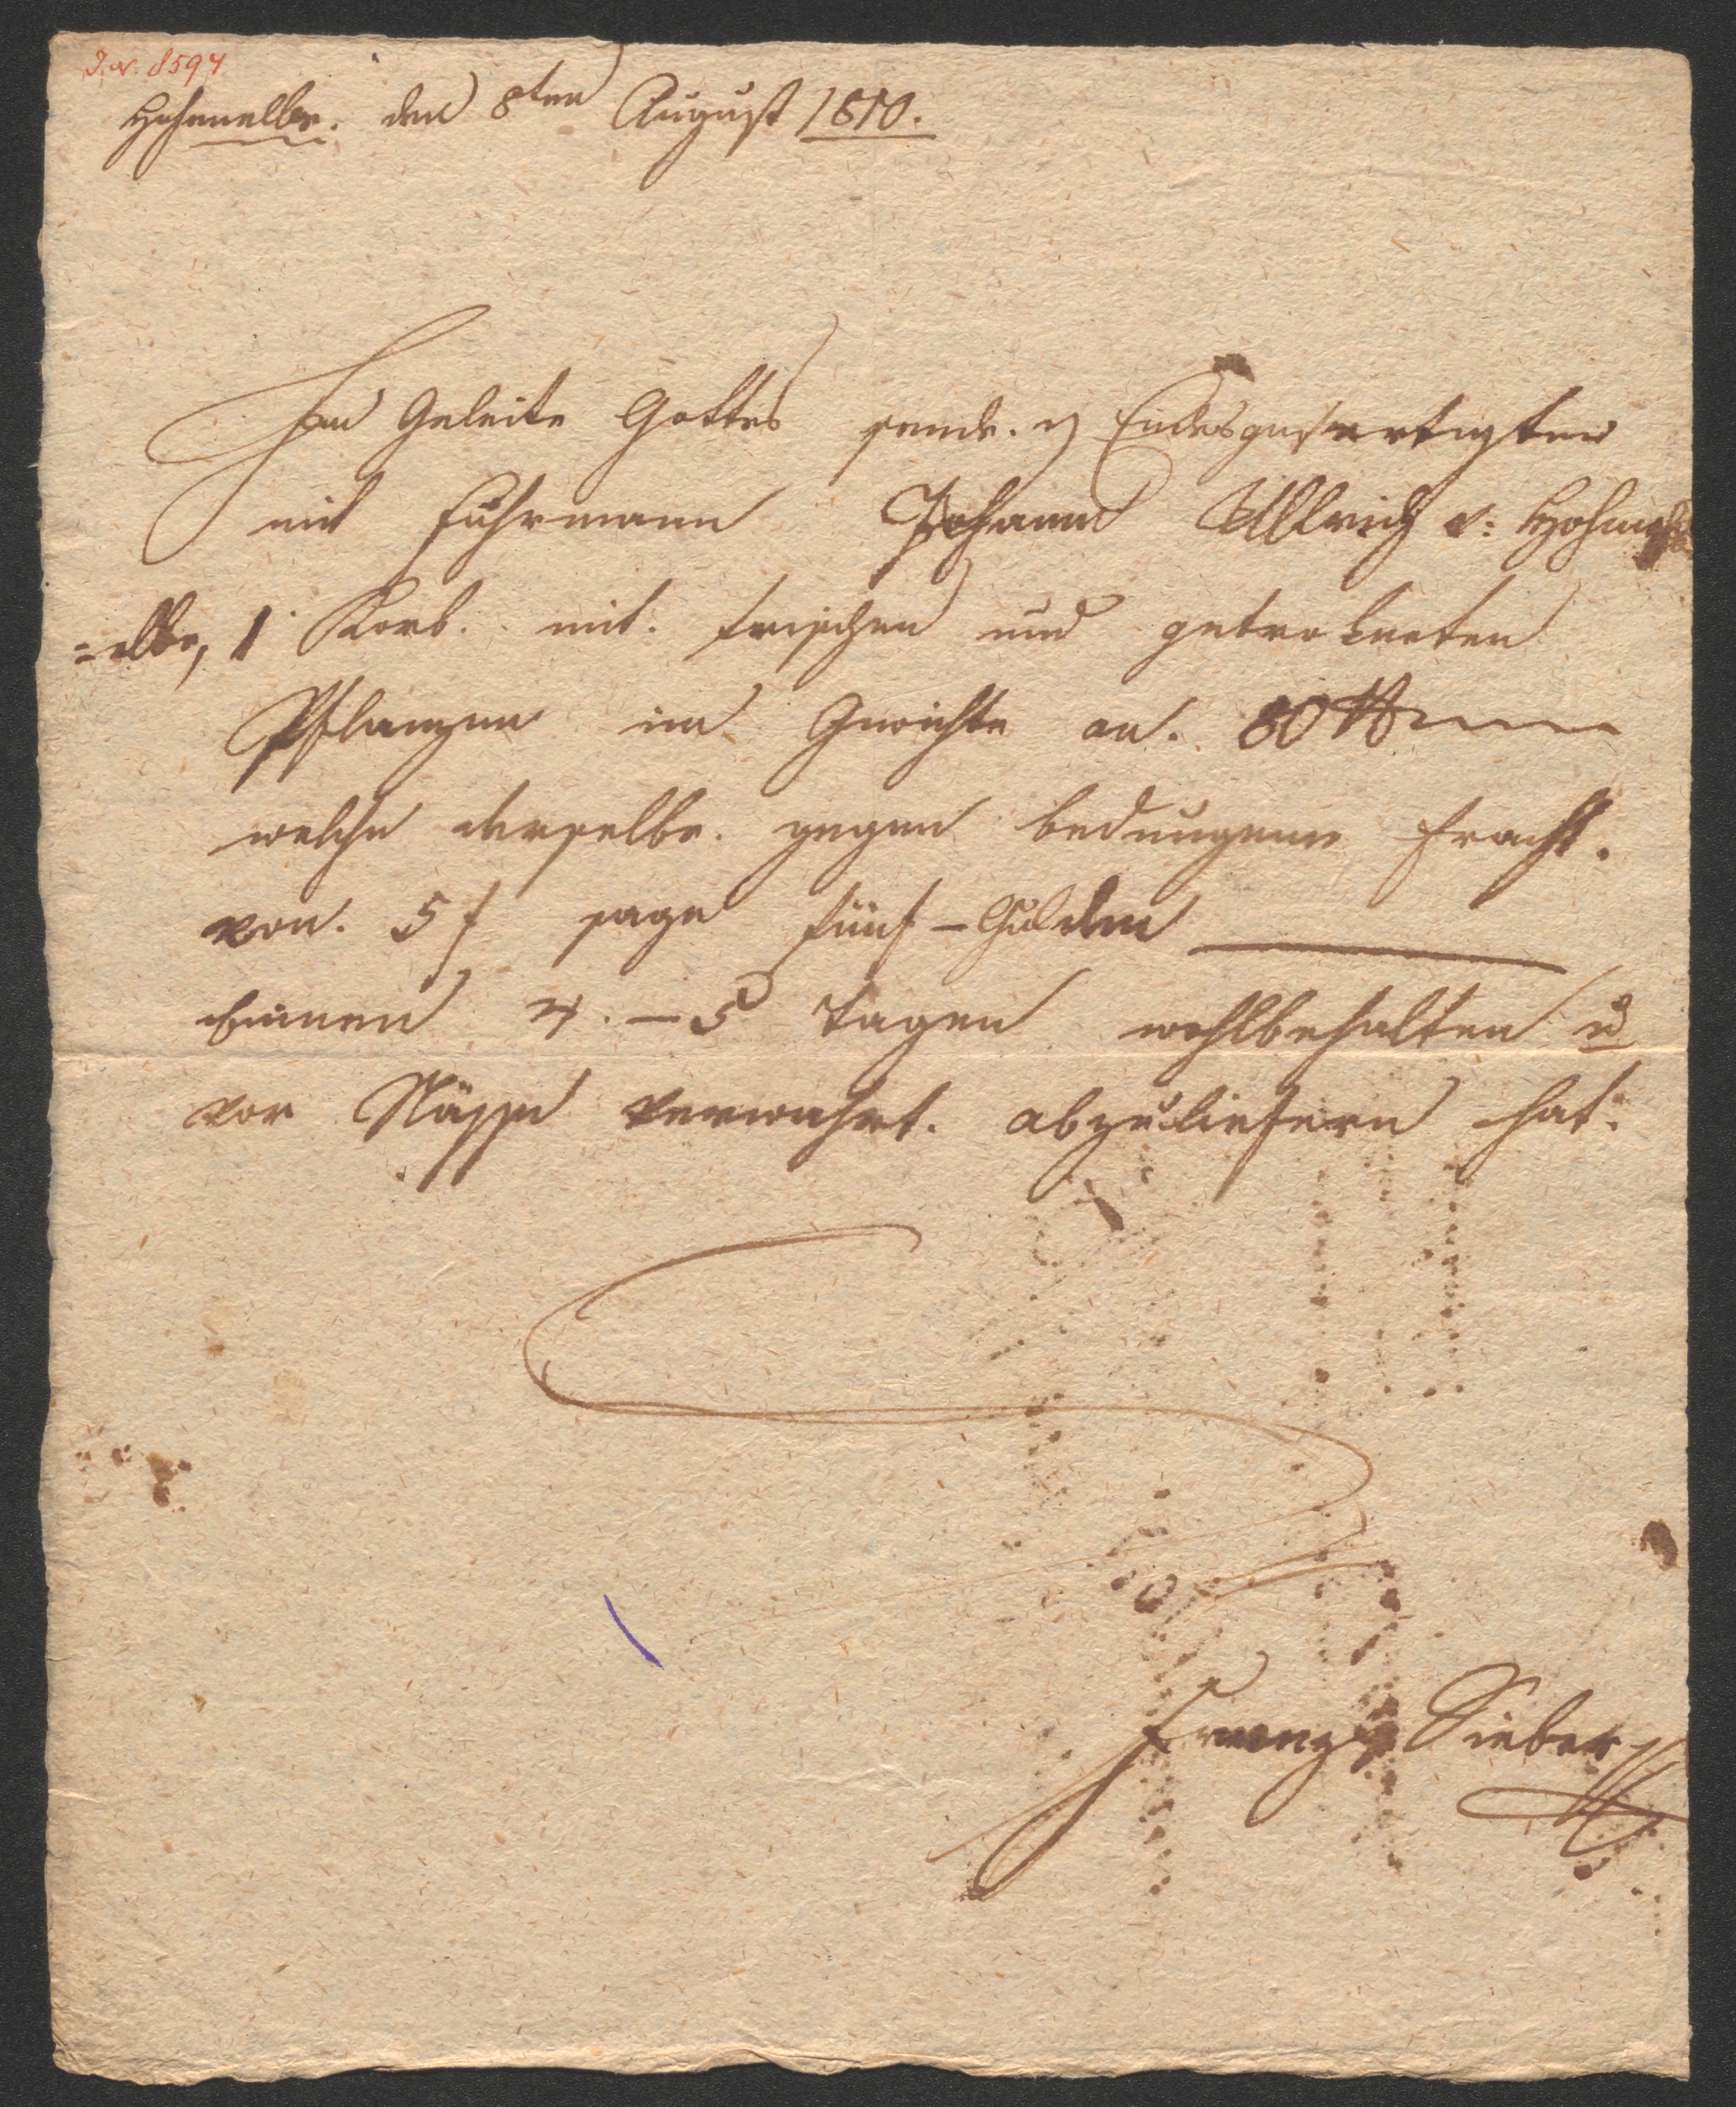 J. N. 8594
Hohenelbe. den 8ten August 1810.
Im Geleite Gottes sende. Endesgefertigter
mit Fuhrmann Johann Ullrich v: Hohen
=elbe, 1 Korb. mit. frischen und getrokneten
Pflanzen im Gewichte an. 80 ℔
welche derselbe. gegen bedungene Fracht.
von. 5 f sage fünf – Gulden
binnen 4. – 5 Tagen wohlbehalten u
vor Nässe verwahrt. abzuliefern hat.
Franz Sieber